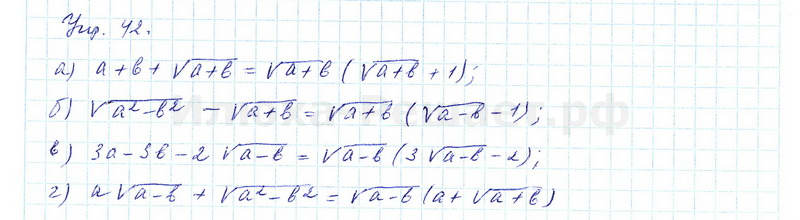 Упр. 42.
а) a+b+√(a+b) = √(a+b) (√(a+b) +1);
б) √(a²-b²) - √(a+b) = √(a+b) (√(a-b) -1);
в) 3a-3b-2√(a-b) = √(a-b) (3√(a-b) -2);
г) a√(a-b) + √(a²-b²) = √(a-b) (a+√(a+b))